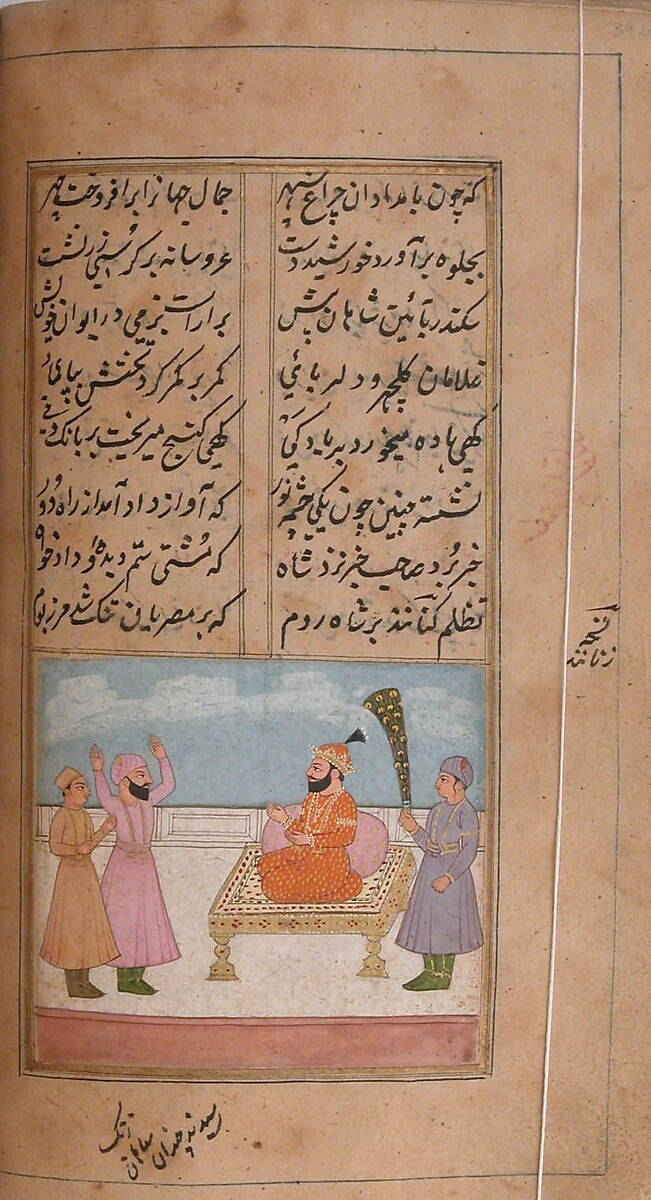 که چون بامدادان چراغ سپهر جمال جهانرا برافروخت چهر
بجلوه برآورد خورشید دست عروسانه بر کرسی زر نشست
سکندر بآئین شاهان پیش براراست بزمی در ایوان خویش
غلامان گلچهر و دلربائی کمر بر کمر گرد تختش بپای
گهی باده میخورد بر یاد کی گهی گنج میریخت بر بانگ نی
نشسته چنین چون یکی چشمه نور که آواز داد آمد از راه دور
خبر برد صاحب خبر نزد شاه که مشتی ستم دیدهٔ و داد خواه
تظلم کنانند بر شاه روم که بر مصریان تنک شد مرز بوم
رسیدند چندان سیاهان زنک